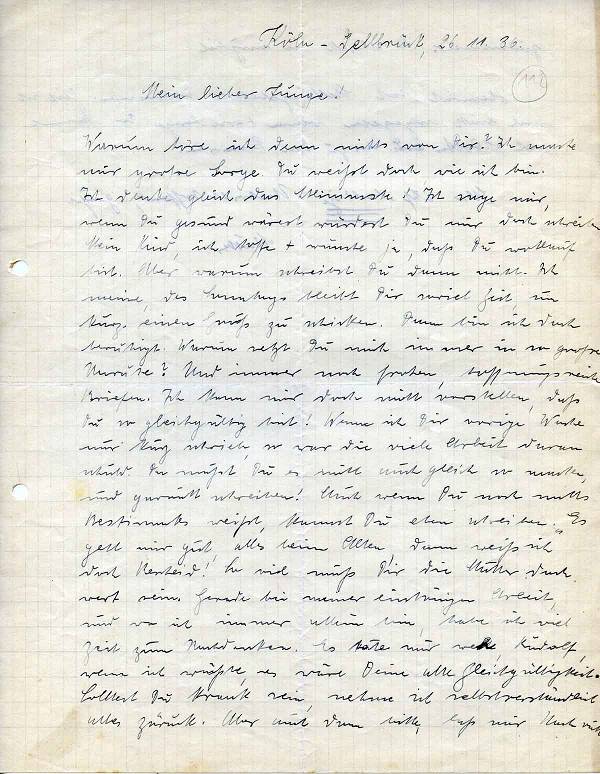 Köln-Dellbrück, 26.11.36.
112
Mein lieber Junge!
Warum höre ich denn nichts von Dir? Ich mache
mir große Sorge. Du weißt doch wie ich bin.
Ich denke gleich das Schlimmste! Ich sage mir,
wenn Du gesund wärest würdest Du mir doch schreiben
Mein Kind, ich hoffe + wünsche ja, daß Du wohlauf
bist. Aber warum schreibst Du dann nicht. Ich
meine, des Sonntags bleibt Dir soviel Zeit, um
kurz einen Gruß zu schicken. Dann bin ich doch
beruhigt. Warum setzt Du mich immer in so große
Unruhe? Und immer nach frohen, hoffnungsreichen
Briefen. Ich kann mir doch nicht vorstellen, daß
Du so gleichgültig bist! Wenn ich Dir vorige Woche
nur kurz schrieb, so war die viele Arbeit daran
schuld. Da mußt Du es nicht auch gleich so machen,
und garnicht schreiben! Auch wenn Du noch nichts
Bestimmtes weißt, kannst Du eben schreiben. "Es
geht mir gut, alles beim Alten", dann weiß ich
doch Bescheid! So viel muß Dir die Mutter doch
wert sein. Gerade bei meiner eintönigen Arbeit,
und wo ich immer allein bin, habe ich viel
Zeit zum Nachdenken. Es täte mir weh, Rudolf,
wenn ich wüßte, es wäre Deine alte Gleichgültigkeit.
Solltest Du krank sein, nehme ich selbstverständlich
alles zurück. Aber auch dann bitte, laß mir Nach